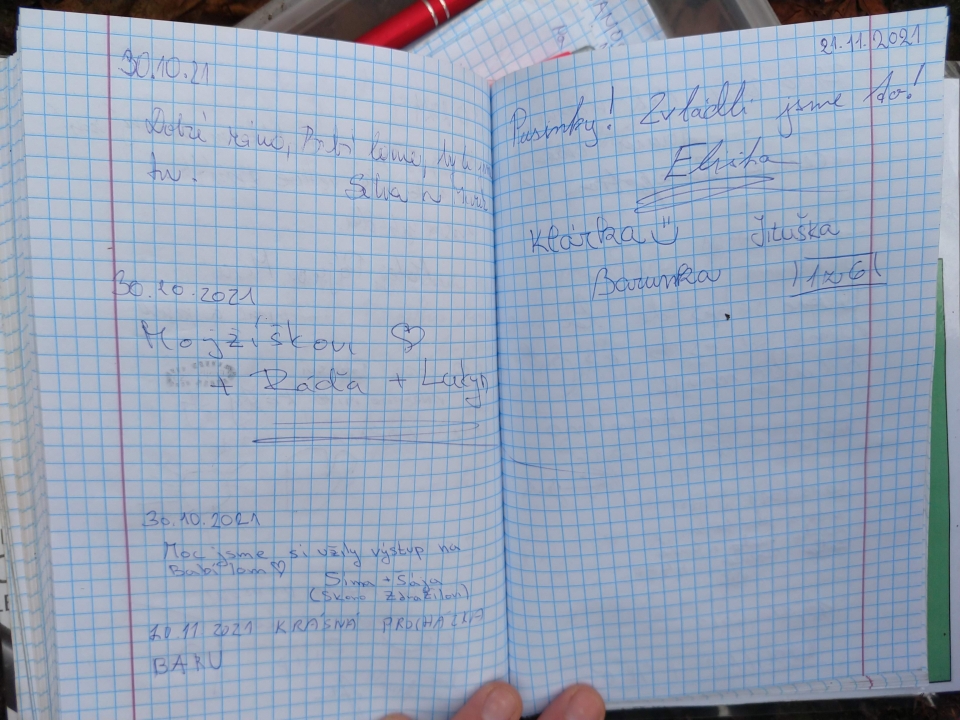 30.10.21
Dobré ráno,
tu.
30.10.2021
Mojžíškovi ♡
+ Ráďa +
30.10.2021
Moc jsme si užily výstup na
Babí lom ♡
Sima + Sága
(skoro
20.11 2021 KRÁSNÁ PROCHÁZKA
BAKU
21.11.2021
Pusinky! Zvládli jsme to!
Eliška
Klárka Jituška
Barunka 1z6